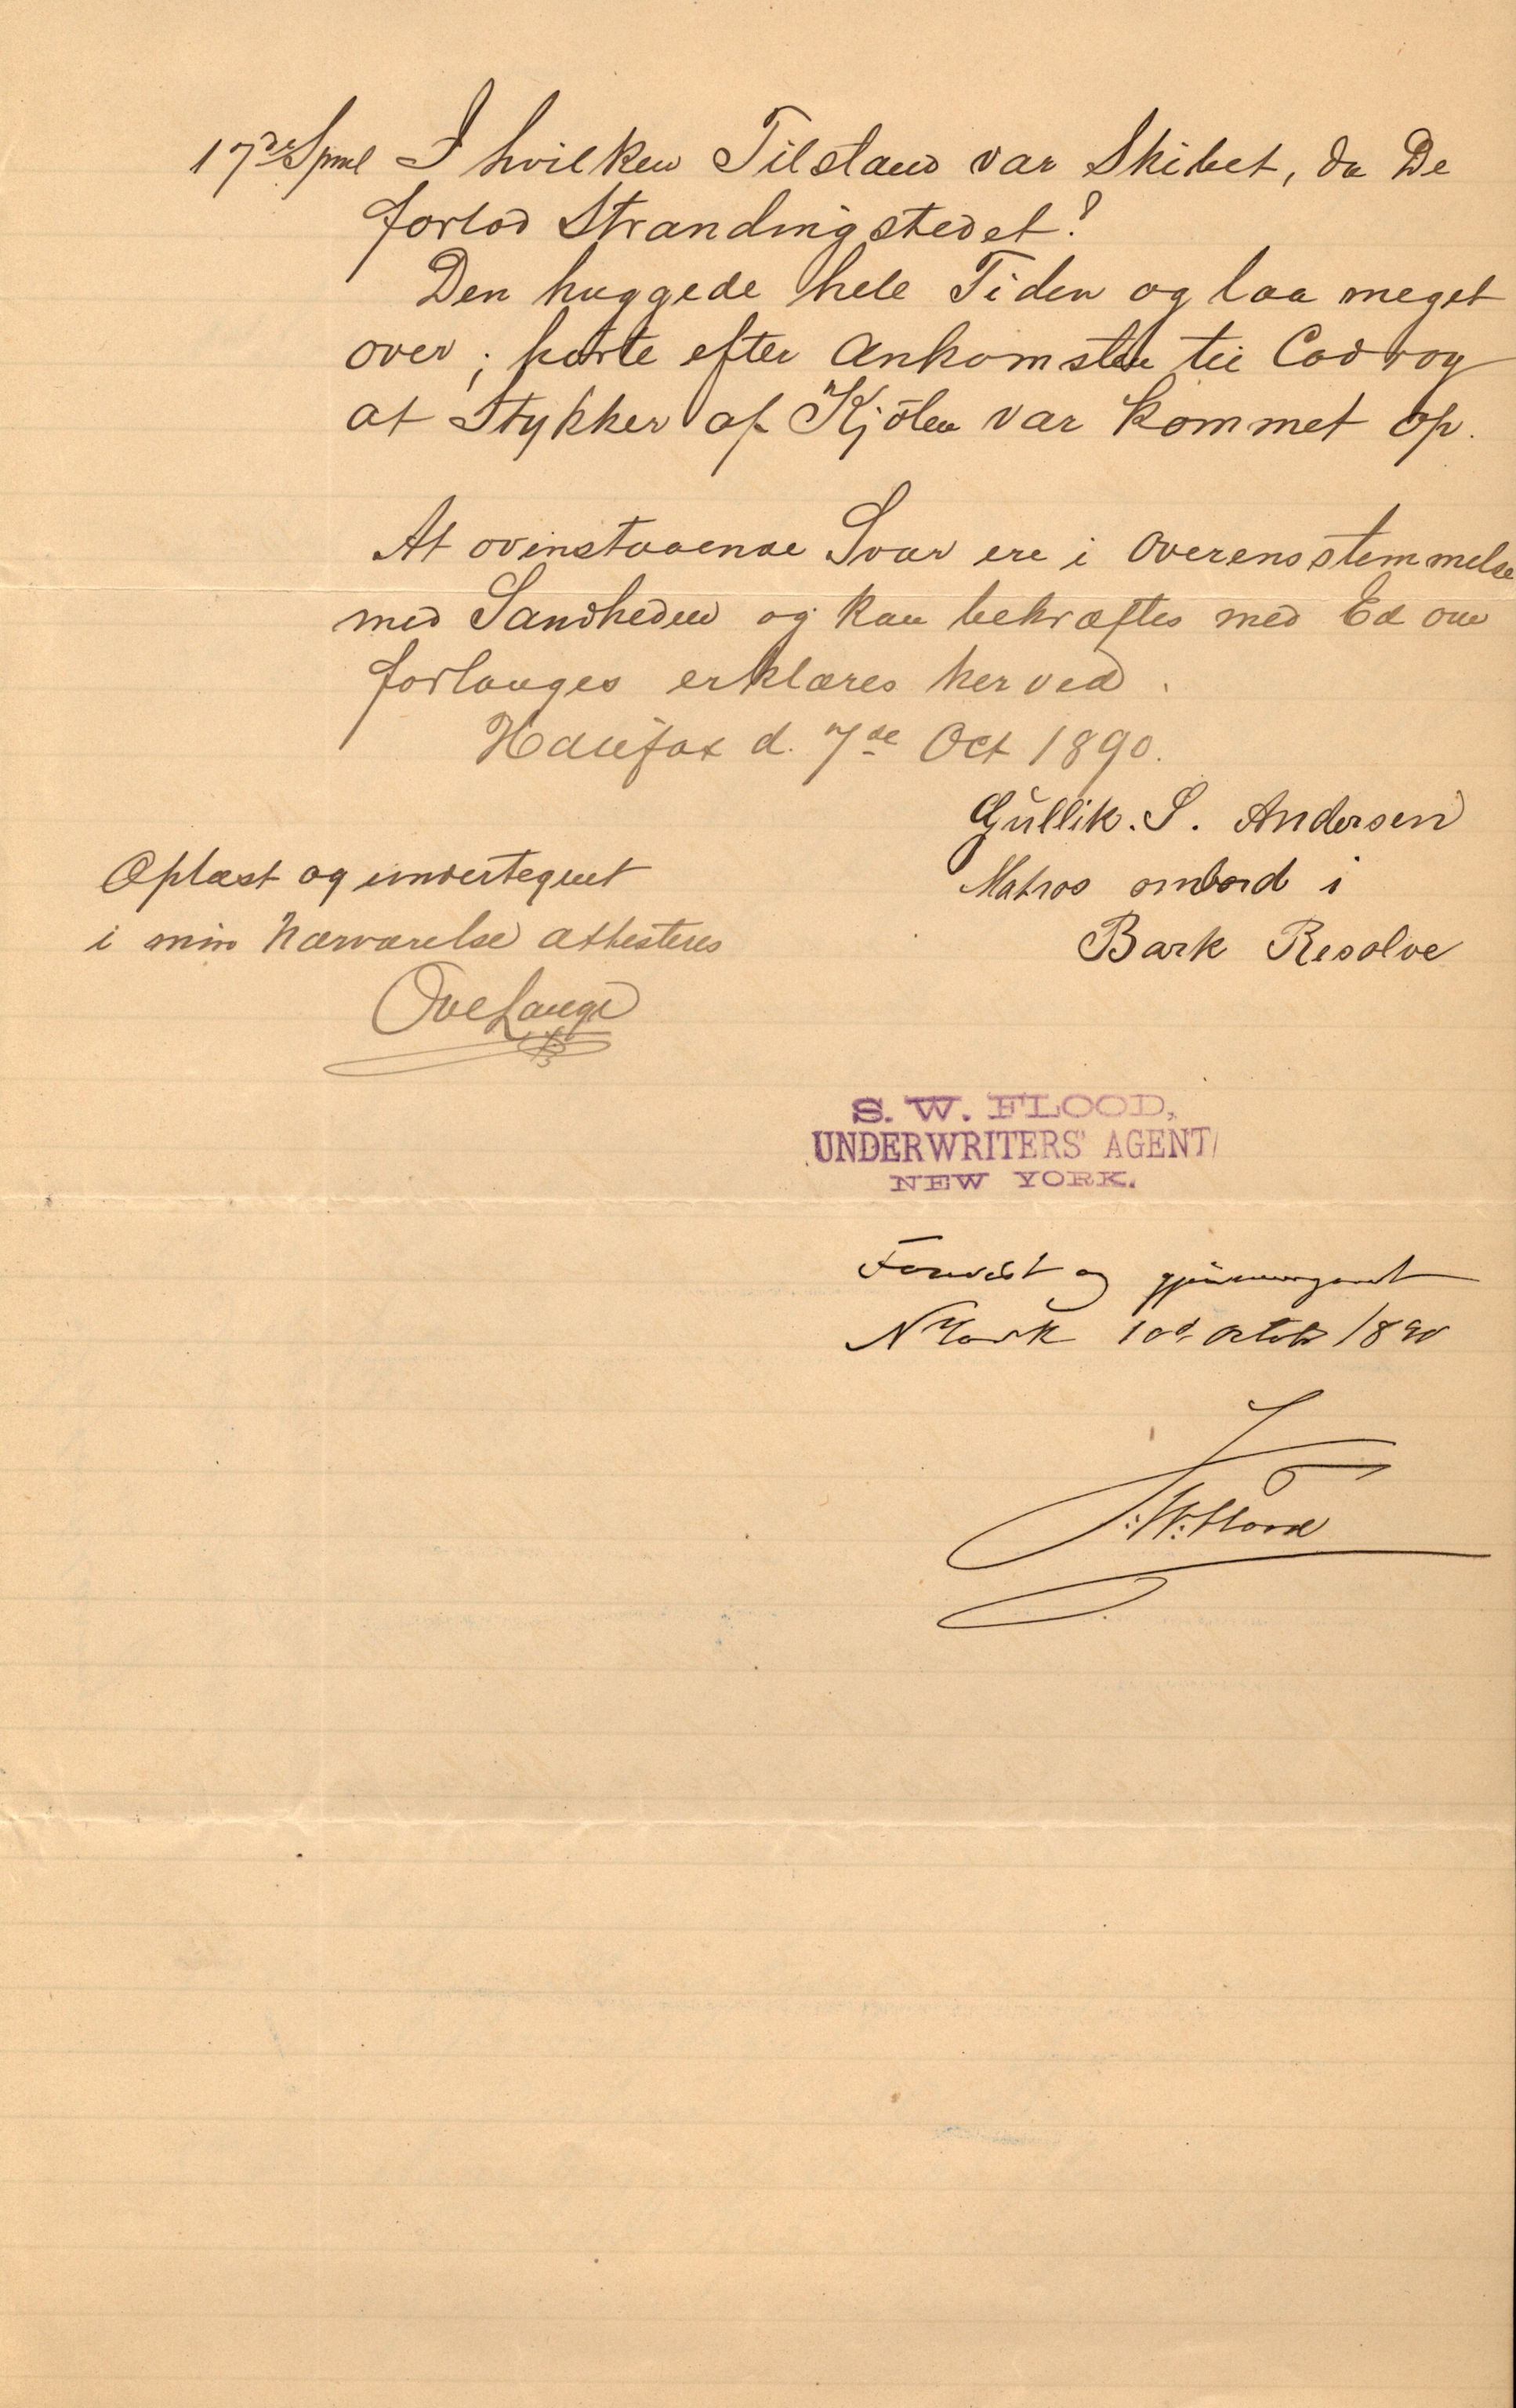 17de Spml I hvilken Tilstand var Skibet, da De
forlod Strandingstedet?
Den huggede hele Tiden og laa meget
over; hørte efter Ankomsten til Codroy
at Stykker af Kjölen var kommet op.
At ovenstaaende Svar ere i Overensstemmelse
med Sandheden og kan bekræftes med Ed om
forlanges erklæres herved.
Halifax d. 7de Oct 1890.
Gullik. S. Andersen
Matros ombord i
Bark Resolve
Oplæst og undertegnet
i min Nærværelse attesteres
Ove Lange
S. W. FLOOD,
UNDERWRITERS' AGENT
NEW YORK.
Forevist og gjennemgaaet
N York 10d October 1890
S. W. Flood